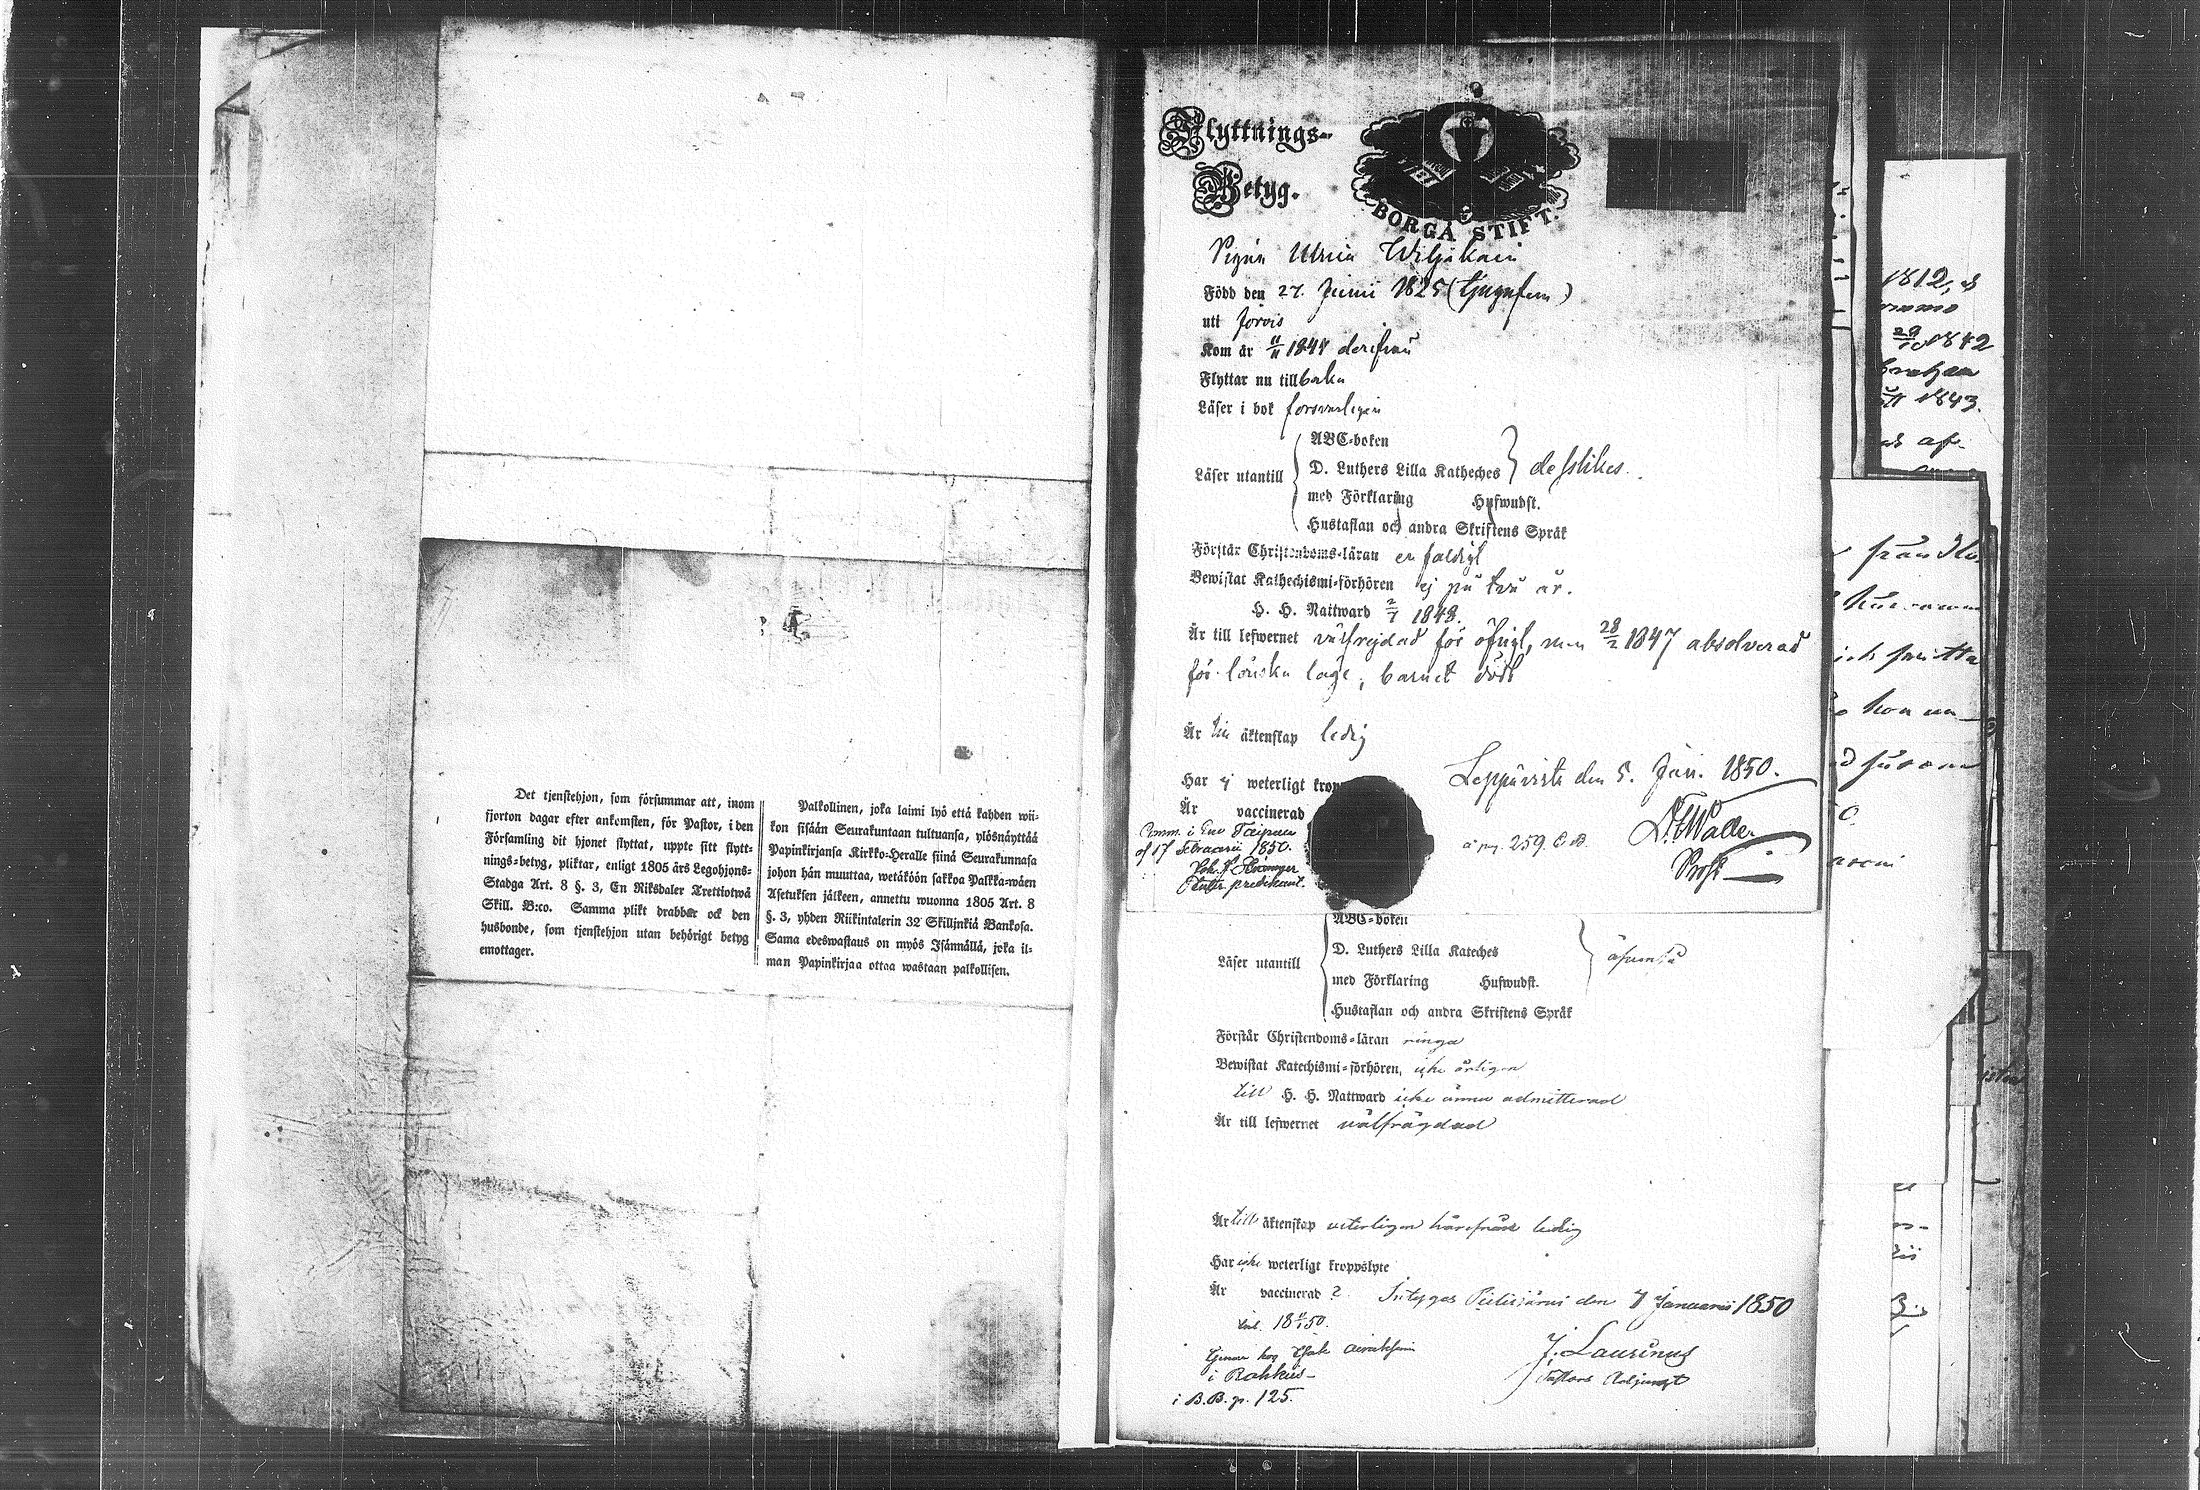 Det tjenstehjon, som försummar att, inom
fjorton dagar efter ankomsten, för Pastor, i den
Församling dit hjonet flyttat, uppte sitt flytt-
nings-betyg, pliktar, enligt 1805 års Legohjons-
Stadga Art. 8 §. 3, En Riksdaler Trettiotwå
Skill. B:co. Samma plikt drabbar ock den
husbonde, som tjenstehjon utan behörigt betyg
emottager.
Palkollinen, joka laimi lyö että kahden wii-
kon sisään Seurakuntaan tultuansa, ylösnäyttää
Papinkirjansa Kirkko-Heralle siinä Seurakunnasa
johon hän muuttaa, wetäköön sakkoa Palkka-wäen
Asetuksen jälkeen, annettu wuonna 1805 Art. 8
§. 3, yhden Riikintalerin 32 Skillinkiä Bankosa.
Sama edeswastaus on myös Isännällä, joka il-
man Papinkirjaa ottaa wastaan palkollisen.
Flyttnings-
Betyg.
BORGÅ STIFT.
Pigan Ulrica Wiljakain
Född den 27. Junii 1825 (tjugufem)
uti Jorois
Kom år 11/11 1847 derifrån
Flyttar nu tillbaka
Läser i bok försvarligen
ABC-boken
Läser utantill D. Luthers Lilla Katheches desslikes.
med Förklaring Hufwudst.
Hustaflan och andra Skriftens Språk
Förstår Christendoms-läran enfaldigt
Bewistat Kathechismi-förhören ej på två år.
H. H. Nattward 2/7 1848.
Är till lefwernet välfrejdad för öfrigt, men 28/2 1847 absolverad
för lönska läge, barnet dödt
Är till äktenskap ledig
Har ej weterligt krop
Leppävirta den 5. Jan. 1850.
Är vaccinerad
à pag. 259. C. B.
Prost
Comm. i Taipale
17 Februarii 1850.
ABC-boken
D. Luthers Lilla Kateches
Läser utantill äfvenså
med Förklaring Hufwudst.
Hustaflan och andra Skriftens Språk
Förstår Christendoms-läran ringa
Bewistat Katechismi-förhören, icke årligen
till H. H. Nattward icke ännu admitterad
Är till lefwernet välfrägdad
Är till äktenskap veterligen härifrån ledig
Har icke weterligt kroppslyte
Är vaccinerad ? Intygas Pielisjärvi den 7 Januarii 1850
18 50.
J. Laurinus
Pastors Adjunct
i B.B. p. 125.
1812,
1842
1843.